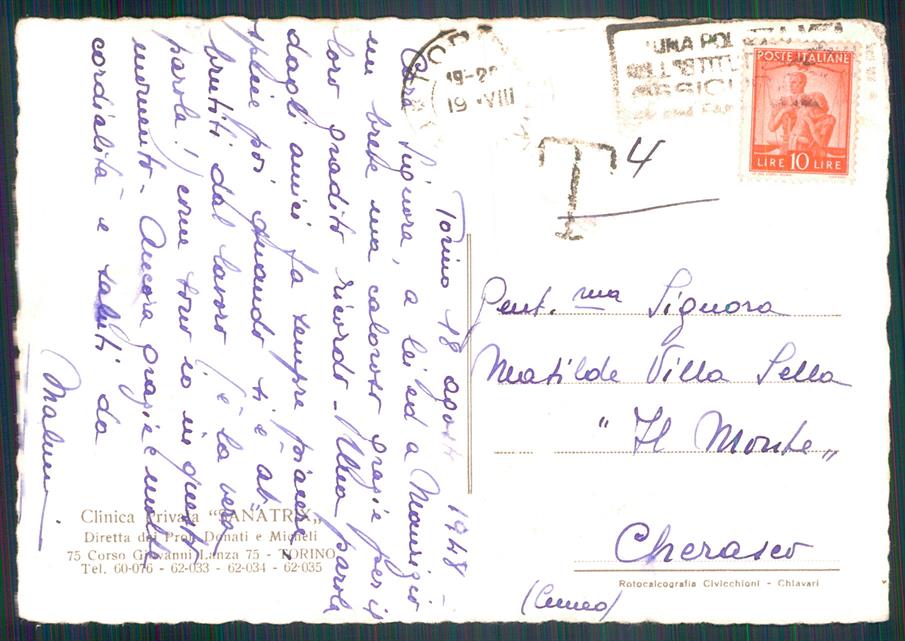 Torino 18 agosto 1948
Cara Signora, a lei ed a Maurizio
un breve ma caloroso grazie per il
loro gradito ricordo - Una parola
dagli amici fa sempre piacere
specie poi quando si è "ab
brutiti dal lavoro" (è la vera
parola!) come sono io in questo
momento - Ancora grazie e molte
cordialità e saluti da
19-20
19 VIII
UNA POLIZZA VITA
DELL'ISTITUTO
POSTE ITALIANE
LIRE 10 LIRE
T 4
Gent.ma Signora
Matilde Villa Sella
"Il Monte"
Cherasco
(Cuneo)
Clinica Privata "SANATRIX"
Diretta dai Prof. Donati e Micheli
75 Corso Giovanni Lanza 75 - TORINO
Tel. 60-076 - 62-033 - 62-034 - 62-035
Rotocalcografia Civicchioni - Chiavari